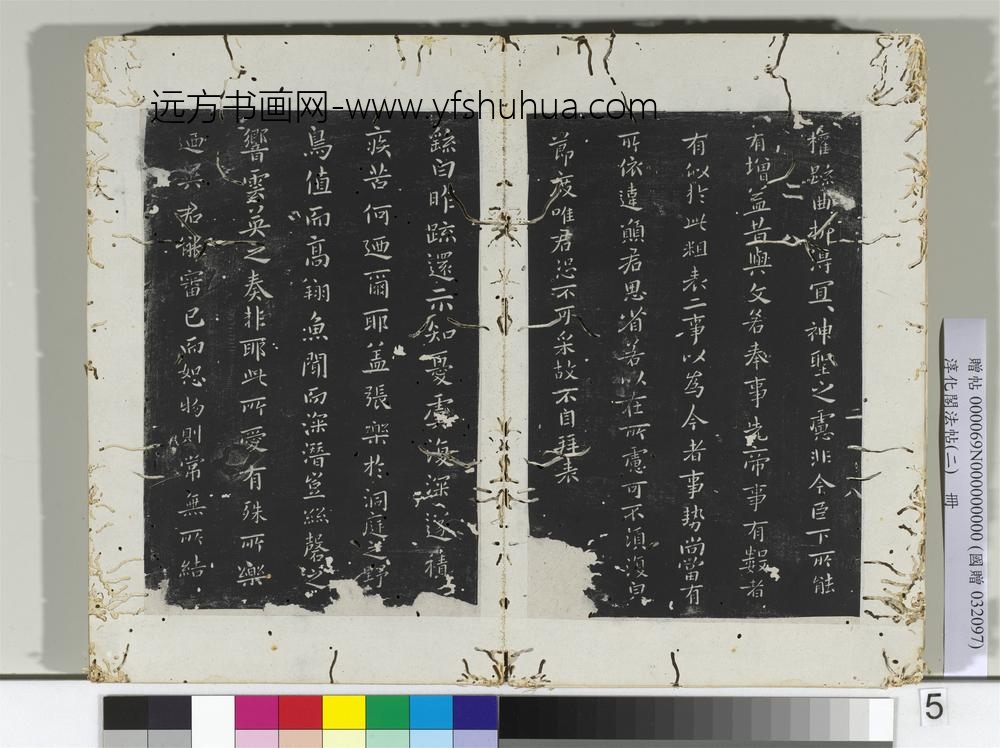 远方书画网-www.yfshuhua.com
權雖曲折得冝神聖之慮非今臣下所能
有增益昔與文若奉事先帝事有數者
有似於此粗表二事以為今者事勢尚當有
所依違願君思省若以在所慮可不須復皃
節度唯君恐不可采故不自拜表
繇白昨疏還示知憂虞復深遂積
疾苦何迺爾耶蓋張樂於洞庭之野
鳥值而高翔魚聞而深潛豈絲磬之
響雲英之奏非耶此所愛有殊所樂
迺異君能審己而恕物則常無所結
贈帖 000069N000000000 (國贈 032097)
淳化閣法帖(二) 冊
5